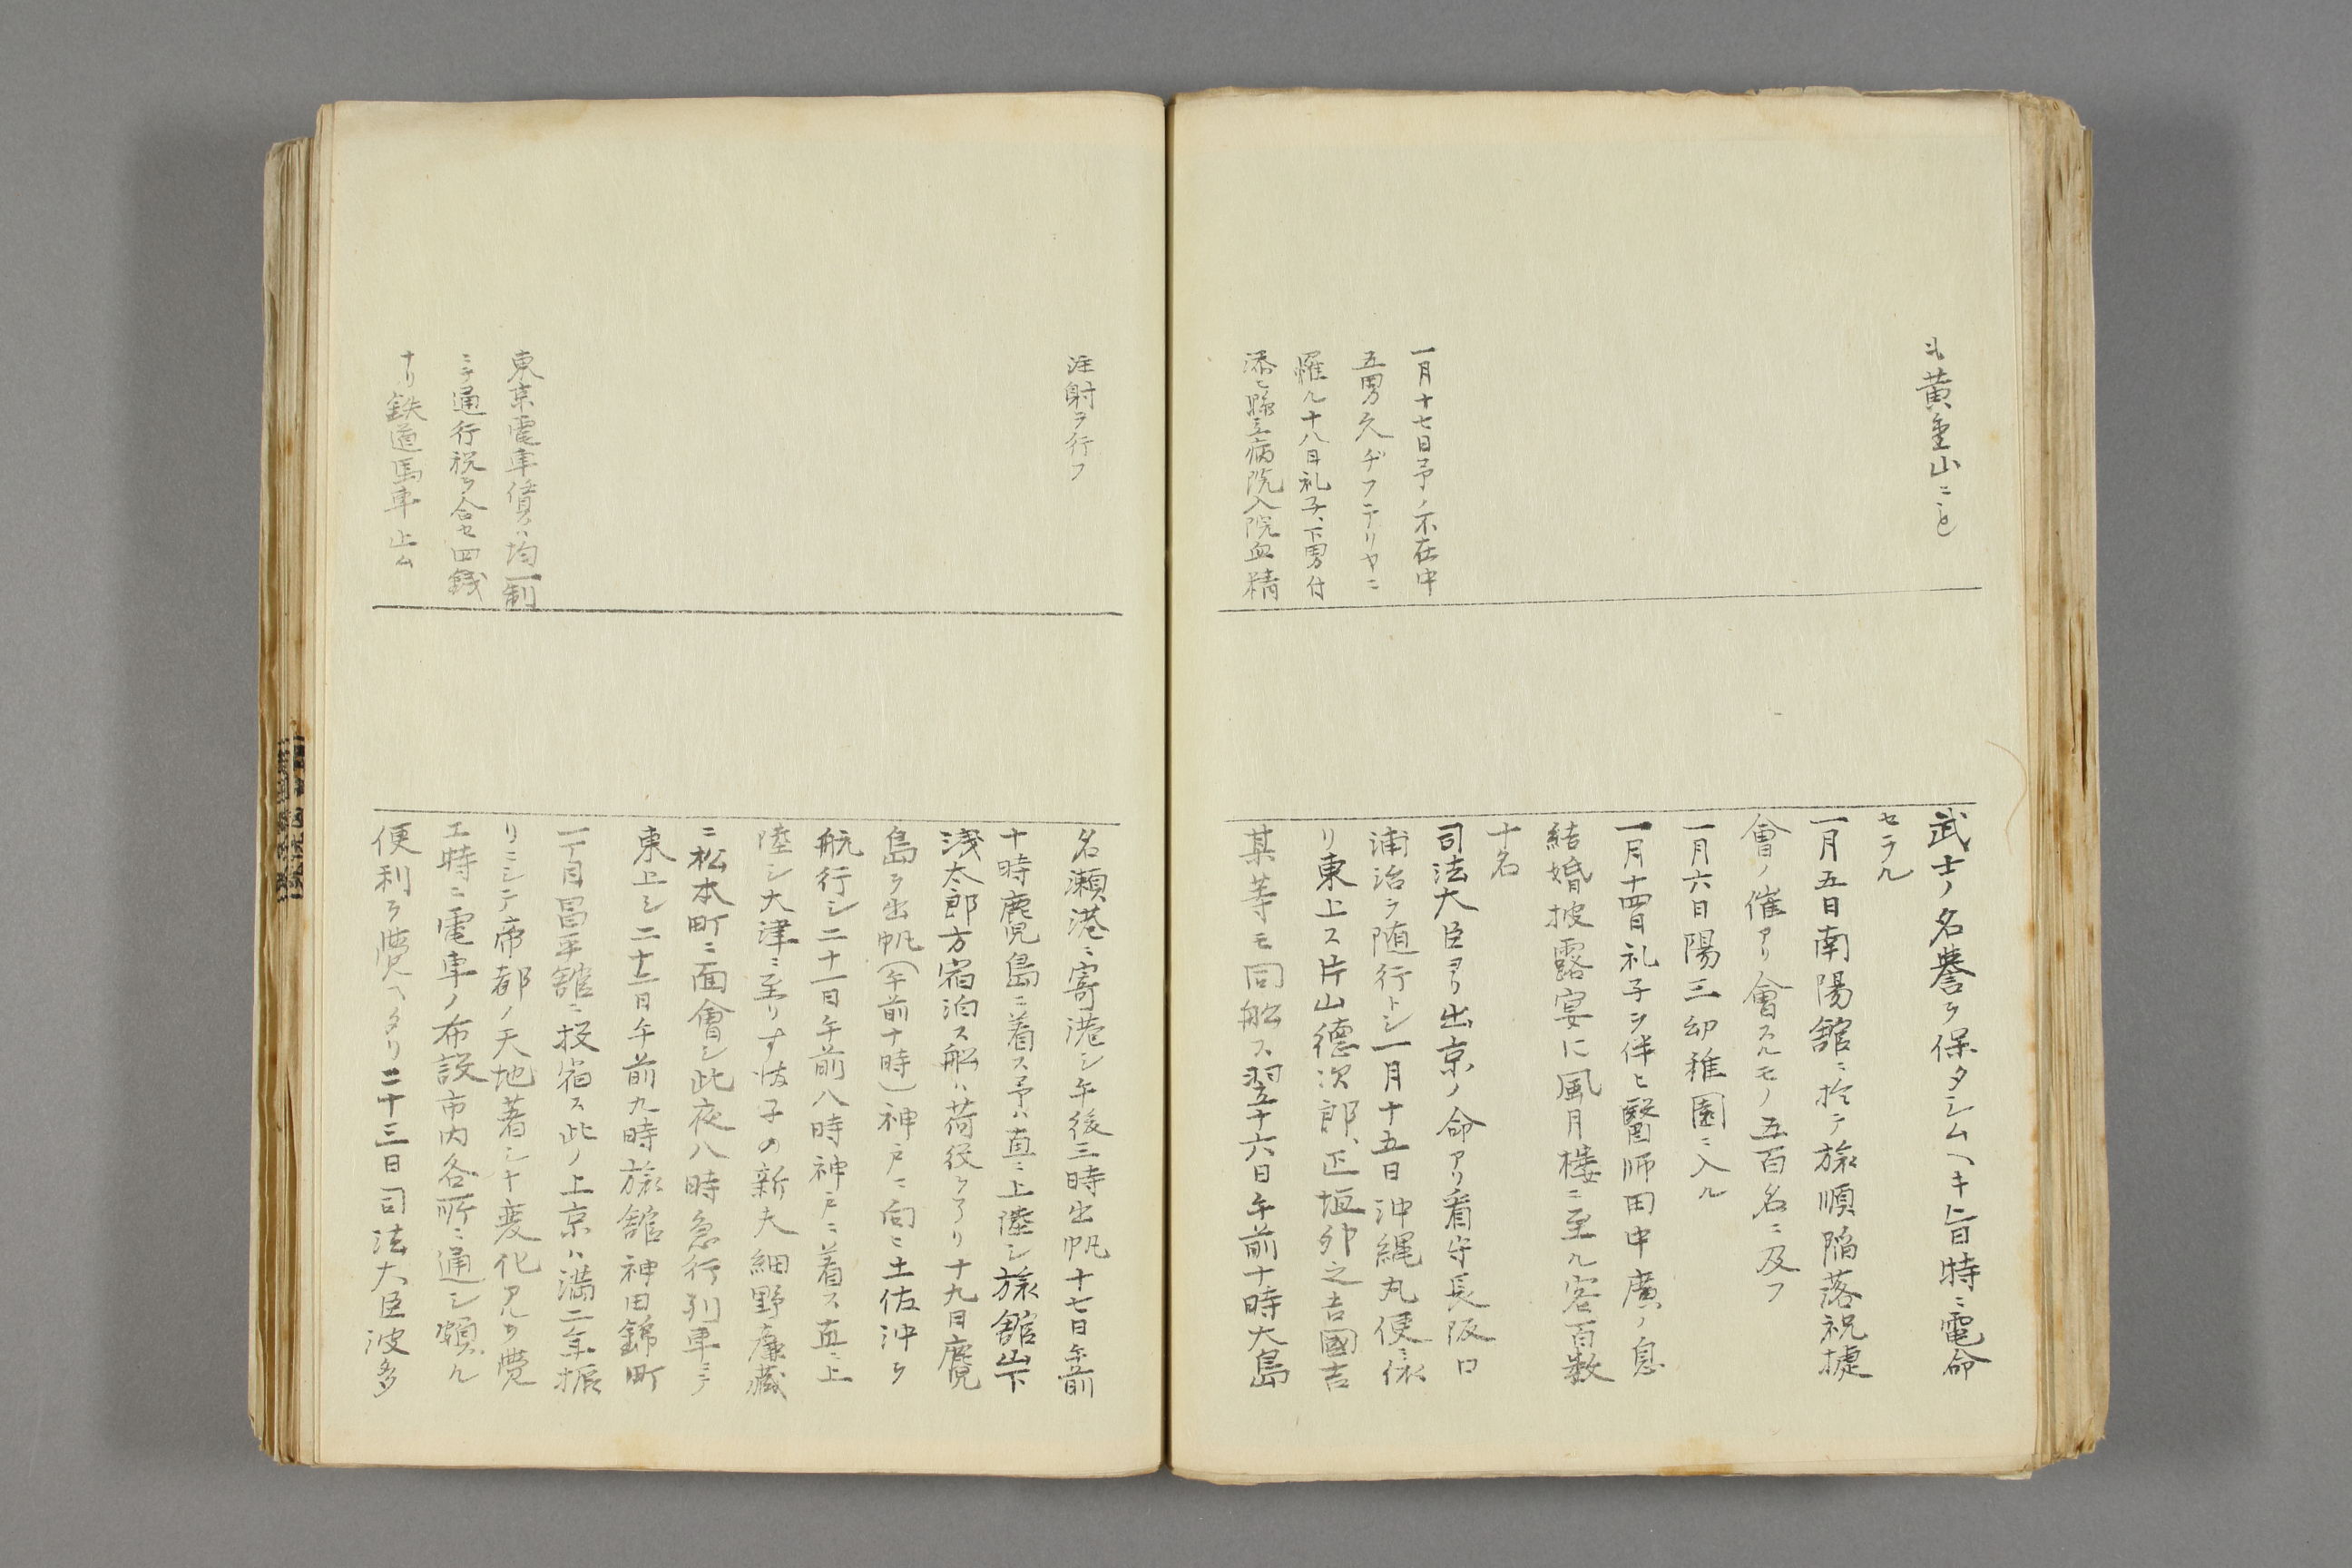 も黄金山ニ
一月十七日予ノ不在中
五男久ヂフテリヤニ
罹ル十八日礼子、下男付
添ヒ縣立病院入院血精
武士ノ名譽ヲ保タシムヘキ旨特ニ電命
セラル
一月五日南陽舘ニ於テ旅順陥落祝捷
會ノ催アリ會スルモノ五百名ニ及フ
一月六日陽三幼稚園ニ入ル
一月十四日礼子ヲ伴ヒ醫師田中廣ノ息
結婚披露宴に風月樓ニ至ル客百数
十名
司法大臣ヨリ出京ノ命アリ看守長阪口
浦治ヲ随行トシ一月十五日沖縄丸便ニ依
リ東上ス片山徳次郎、正垣卯之吉國吉
某等モ同船ス翌十六日午前十時大島
注射ヲ行フ
東京電車賃ハ均一制
ニテ通行税ヲ合セ四銭
ナリ鉄道馬車止ム
名瀬港ニ寄港シ午後三時出帆十七日午前
十時鹿児島ニ着ス予ハ直ニ上陸シ旅舘山下
浅太郎方宿泊ス船ハ荷役ヲ了リ十九日麑
島ヲ出帆(午前十時)神戸ニ向ヒ土佐沖ヲ
航行シ二十一日午前八時神戸ニ着ス直ニ上
陸シ大津ニ至リすな子の新夫細野廉藏
ニ松本町ニ面會シ此夜八時急行列車ニテ
東上シ二十二日午前九時旅舘神田錦町
一丁目昌平舘ニ投宿ス此ノ上京ハ満二年振
リニシテ帝都ノ天地著シキ変化アルヲ覺
エ特ニ電車ノ布設市内各所ニ通シ頗ル
便利ヲ覺ヘタリ二十三日司法大臣波多